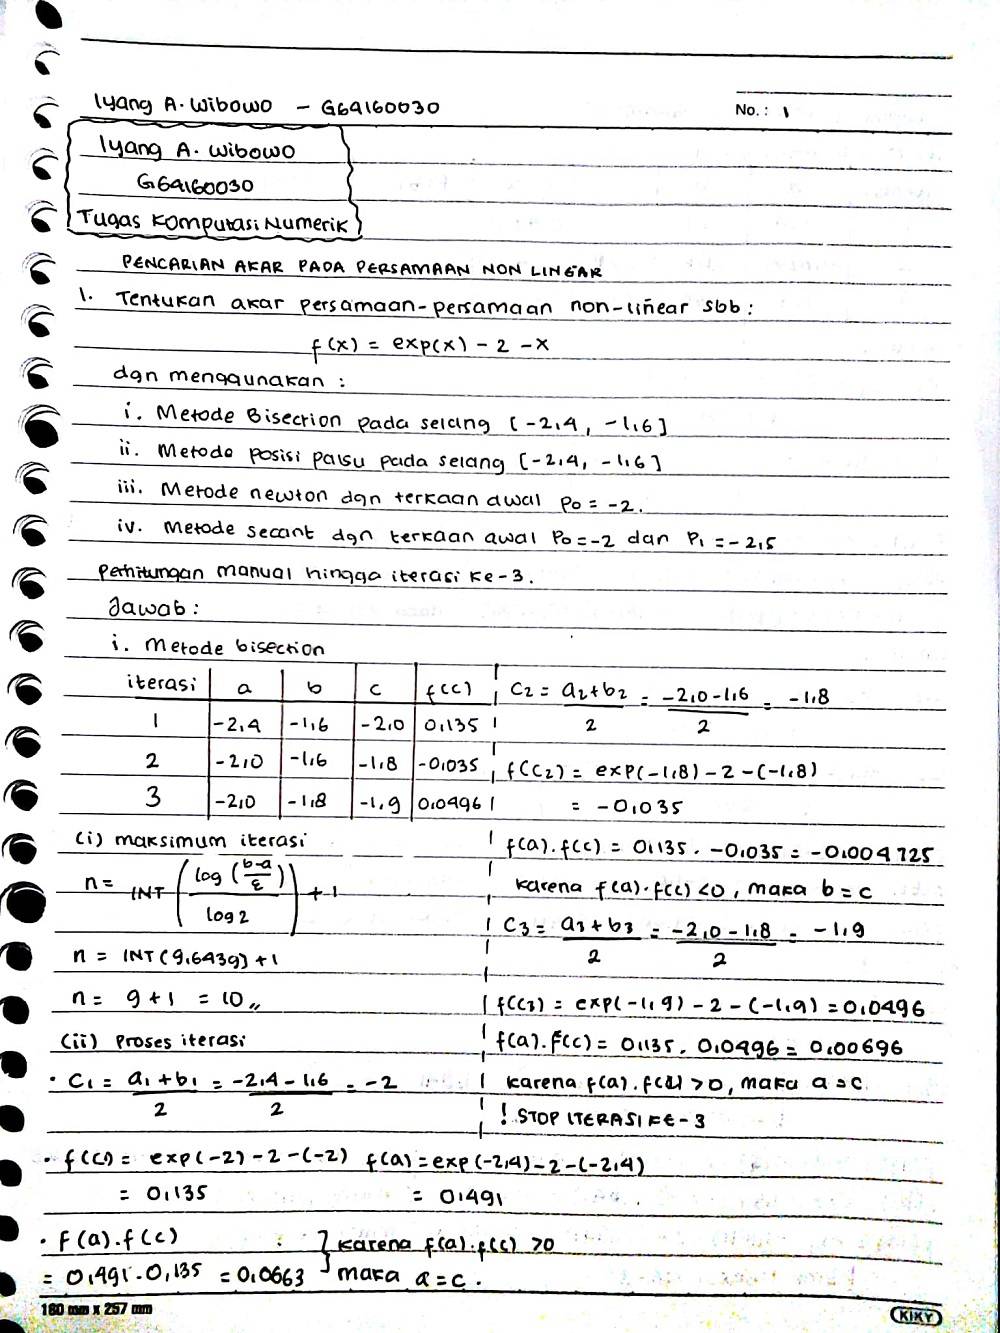 Iyang A. Wibowo - G64160030
No.: 1
Iyang A. Wibowo
G64160030
Tugas Komputasi Numerik
PENCARIAN AKAR PADA PERSAMAAN NON LINEAR
1. Tentukan akar persamaan-persamaan non-linear sbb:
f(x) = exp(x) - 2 - x
dgn menggunakan :
i. Metode Bisection pada selang [-2,4, -1,6]
ii. Metode posisi palsu pada selang [-2,4, -1,6]
iii. Metode newton dgn terkaan awal P0 = -2.
iv. Metode secant dgn terkaan awal P0 = -2 dan P1 = -2,5
Perhitungan manual hingga iterasi ke-3.
Jawab :
i. Metode bisection
iterasi | a | b | c | f(c)
1 | -2,4 | -1,6 | -2,0 | 0,135
2 | -2,0 | -1,6 | -1,8 | -0,035
3 | -2,0 | -1,8 | -1,9 | 0,0496
(i) maksimum iterasi
n = INT (log((b-a)/ε) / log 2) + 1
n = INT(9,6439) + 1
n = 9 + 1 = 10,,
(ii) Proses iterasi
• C1 = (a1 + b1)/2 = (-2,4 - 1,6)/2 = -2
• f(c) = exp(-2) - 2 - (-2) f(a) = exp(-2,4) - 2 - (-2,4)
= 0,135 = 0,491
• f(a).f(c)
= 0,491.0,135 = 0,0663
} karena f(a).f(c) > 0
maka a = c.
C2 = (a2 + b2)/2 = (-2,0 - 1,6)/2 = -1,8
f(C2) = exp(-1,8) - 2 - (-1,8)
= -0,035
f(a).f(c) = 0,135. -0,035 = -0,004725
karena f(a).f(c) < 0, maka b = c
C3 = (a3 + b3)/2 = (-2,0 - 1,8)/2 = -1,9
f(C3) = exp(-1,9) - 2 - (-1,9) = 0,0496
f(a).f(c) = 0,135. 0,0496 = 0,00696
karena f(a).f(c) > 0, maka a = c.
! STOP ITERASI KE-3
180 mm x 257 mm
KIKY